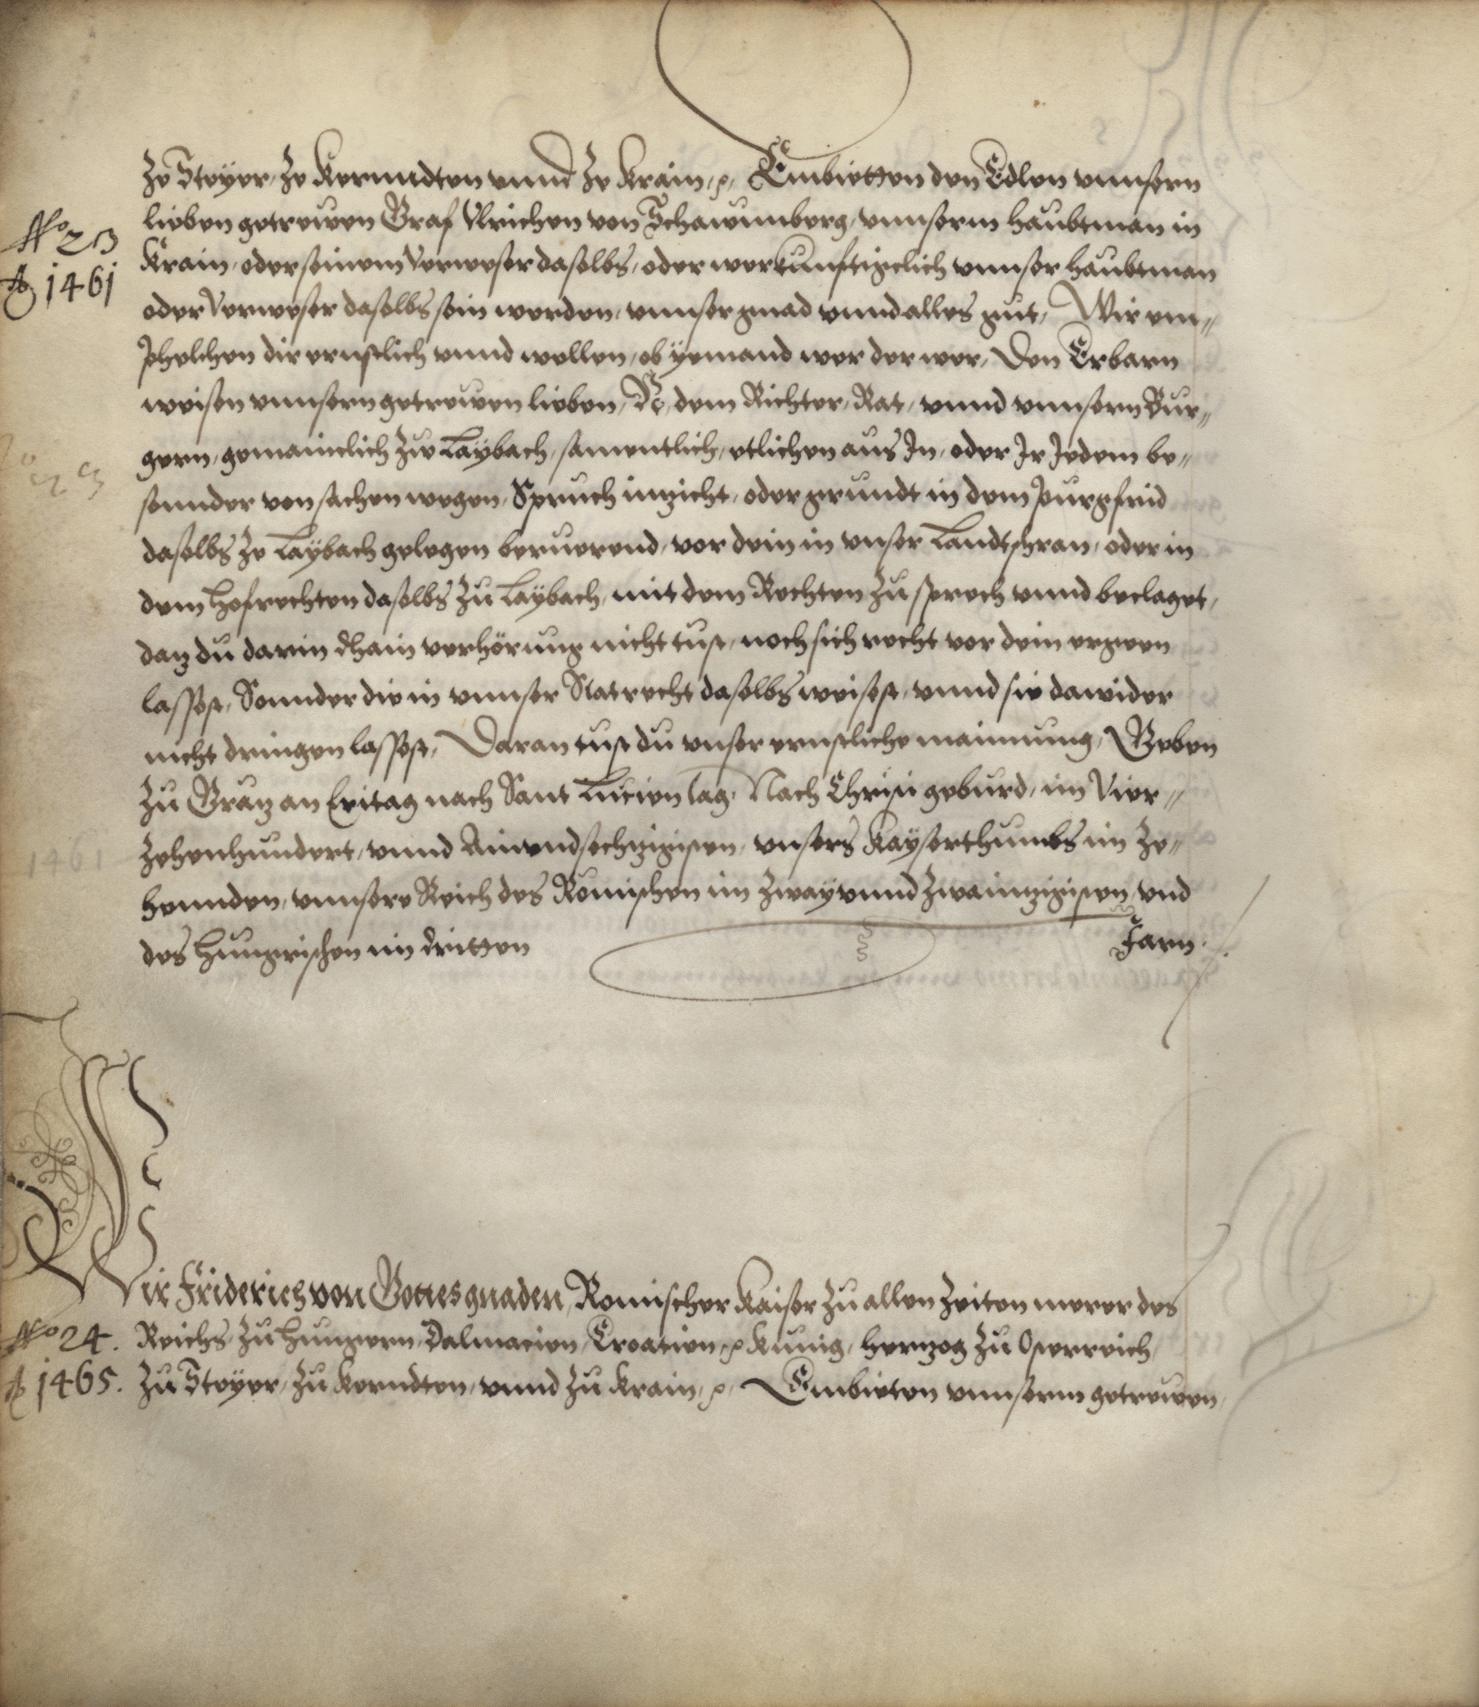 Ze Steyer, Ze Kernndten vnnd Ze Krain, p, Embietten den Edlen vnnsern
lieben getrewen Graf Vlrichen von Schawnnberg, vnnserm haubtman in
No 23
Ao 1461
Krain, oder seinem Verweser daselbs, oder wer kunfftigclich vnnser haubtman
oder Verweser daselbs sein werden, vnnser gnad vnnd alles gut, Wir em„
phelchen dir ernstlich vnnd wellen, ob yemand wer der wer, Den Erbarn
weisen vnnsern getrewen lieben, N. dem Richter, Rat, vnnd vnnsern Bur„
gern, gemainclich Zw Laybach, samentlich, etlichen aus In, oder Ir Jedem be„
sonnder von sachen wegen, Spruch inzicht, oder grundt in dem purgfrid
daselbs Ze Laybach gelegen beruerend, vor dein in vnser Landtschran, oder in
dem hofrechten daselbs Zu Laybach, mit dem Rechten Zu sprech vnnd beclaget,
daz du darin dhain verhörung nicht tust, noch sich recht vor dein ergeen
lassest, Sonnder die in vnnser Statrecht daselbs weisest, vnnd sie dawider
nicht dringen lassest, Daran tust du vnser ernstliche mainnung, Geben
Zu Graz an Eritag nach Sant Lucien tag, Nach Christi geburd, im Vier„
Zehenhundert, vnnd Ainundsechzigisten, vnsers Kayserthumbs im Ze„
hennden, vnnsere Reich des Romischen im Zway vnnd Zwainzigisten, vnd
des hungrischen im dritten Jarn.
Wir Friderich von Gottes gnaden, Romischer Kaiser Zu allen Zeiten merer des
No 24.
Reichs Zu hungern, Dalmacien, Croatien, p Kunig, hertzog Zu Osterreich
Ao 1465.
Zu Steyer, Zu Kerndten, vnnd Zu Krain, p, Embieten vnnserm getrewen,